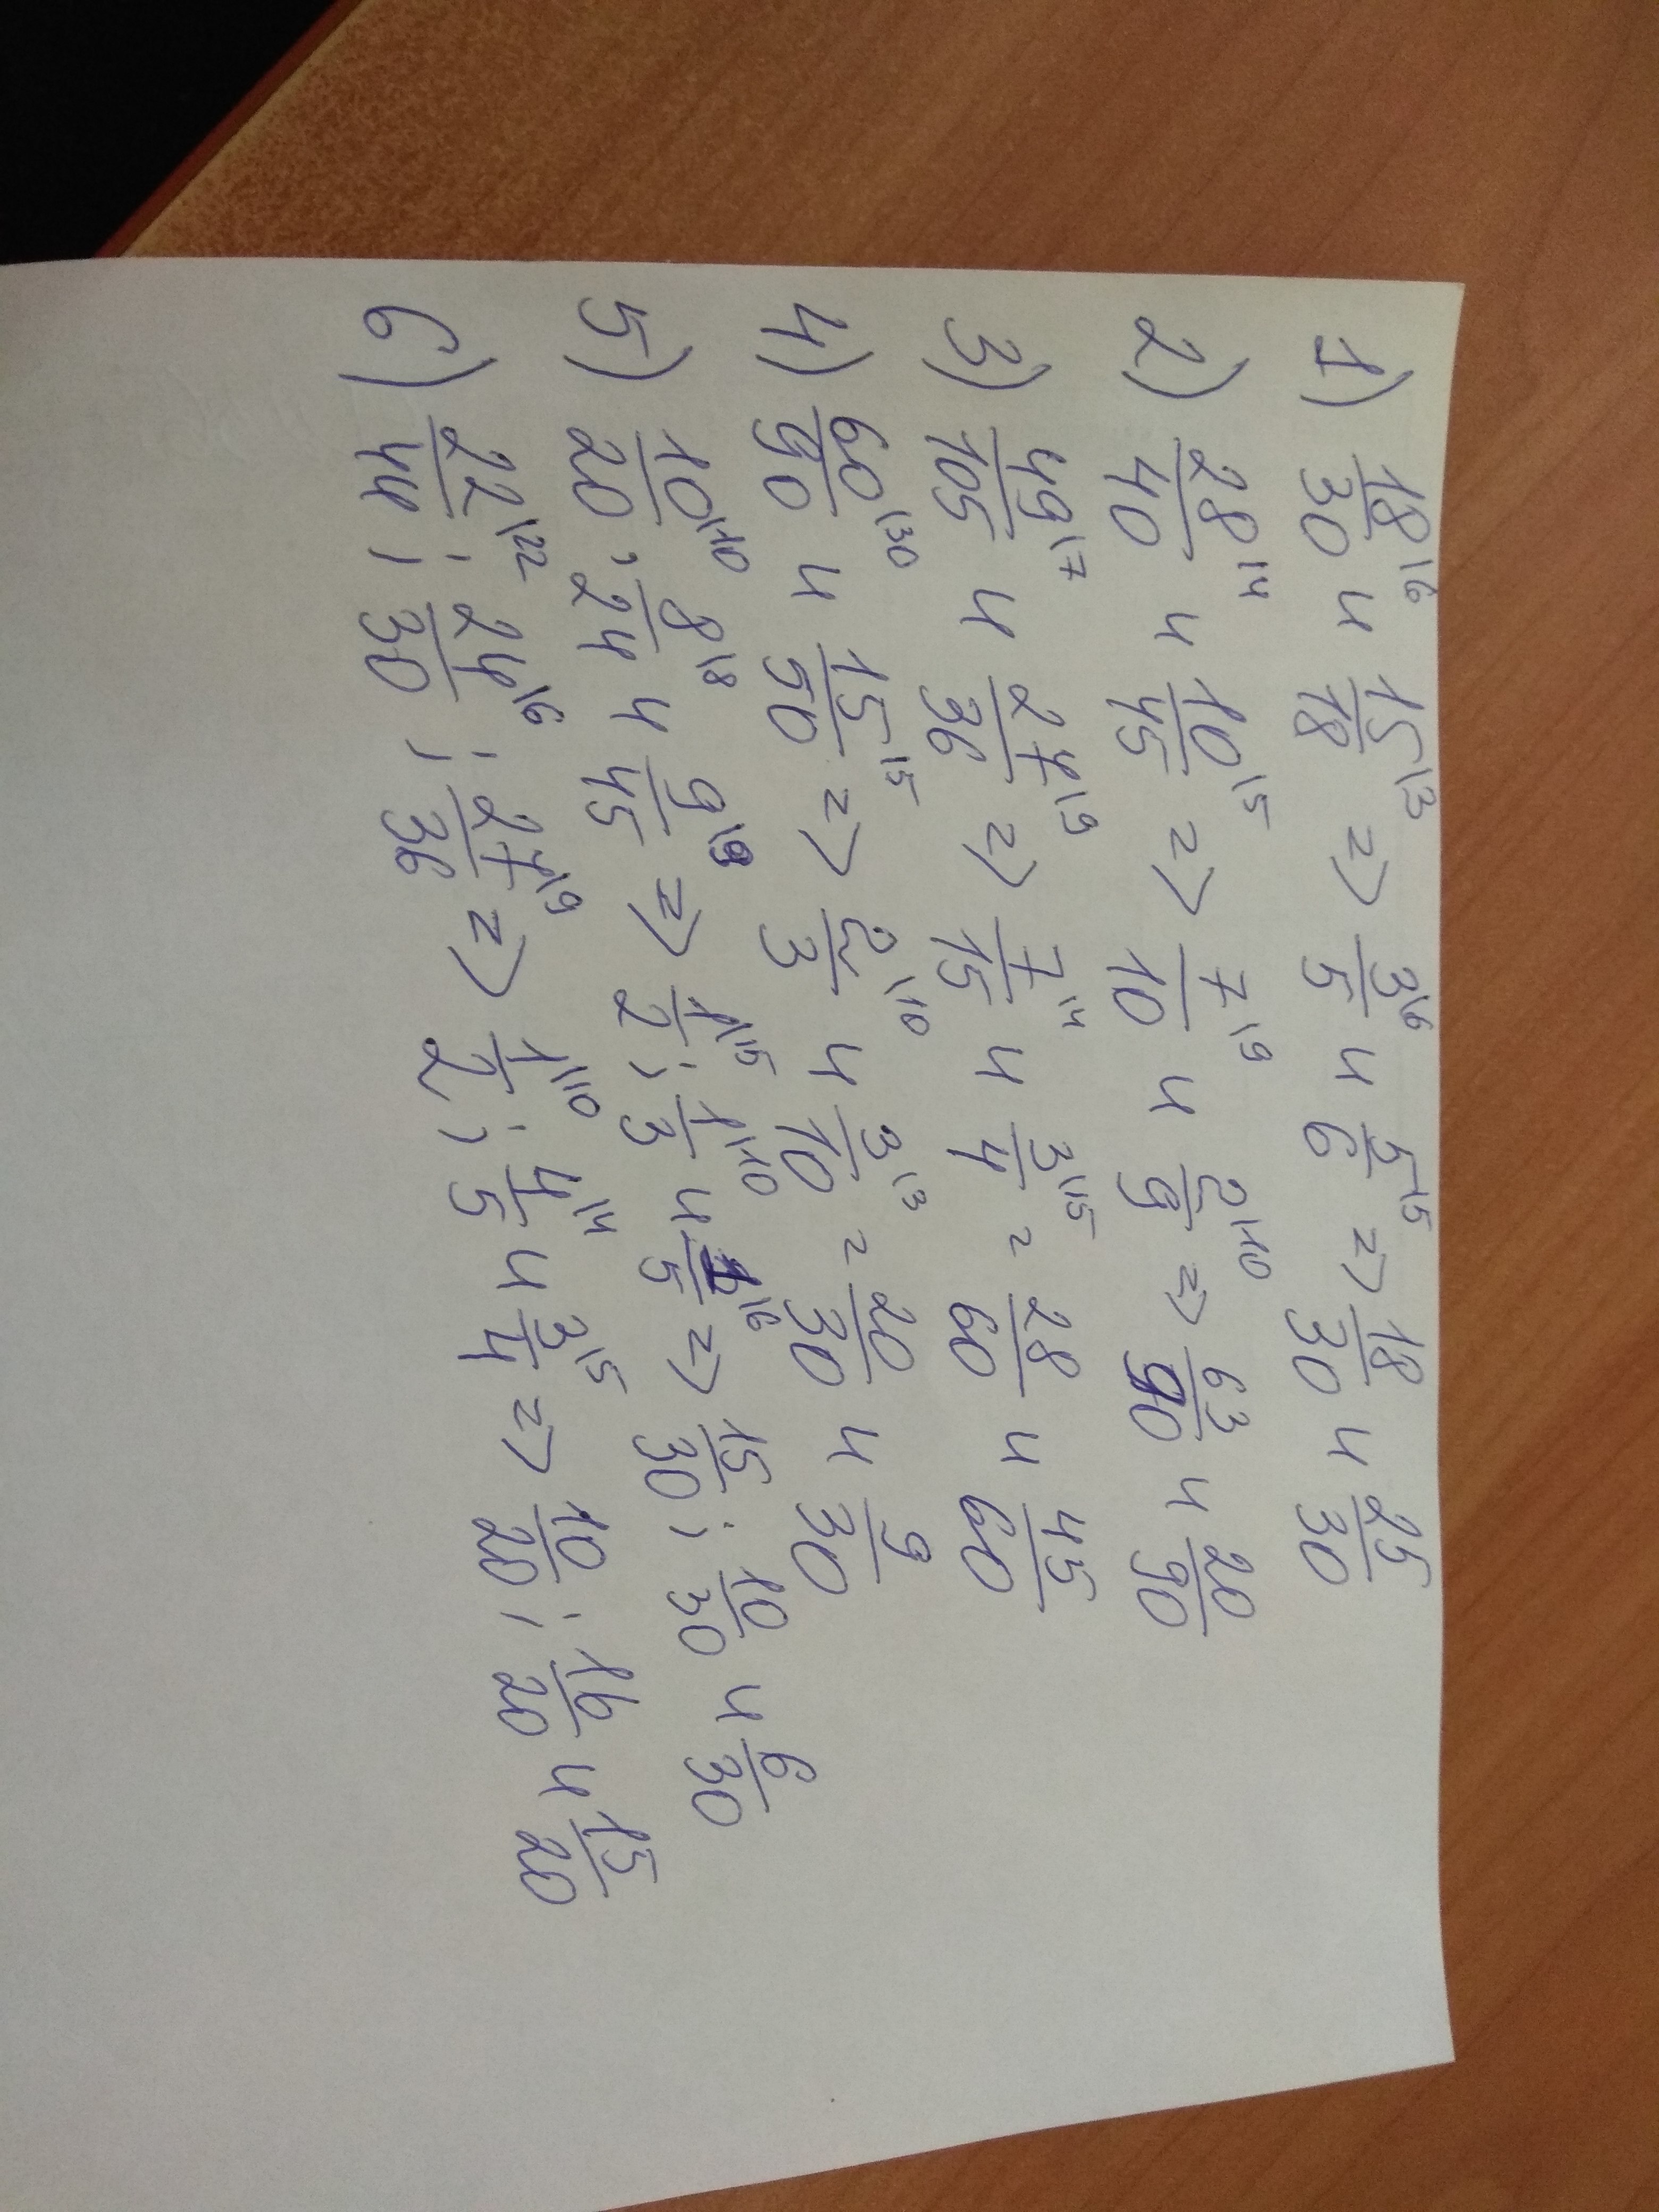 1) 18/30 |6 и 15/18 |3 => 3/5 |6 и 5/6 |5 => 18/30 и 25/30
2) 28/40 |4 и 10/45 |5 => 7/10 |9 и 2/9 |10 => 63/90 и 20/90
3) 49/105 |7 и 27/36 |9 => 7/15 |4 и 3/4 |15 = 28/60 и 45/60
4) 60/90 |30 и 15/50 |5 => 2/3 |10 и 3/10 |3 = 20/30 и 9/30
5) 10/20 |10 ; 8/24 |8 и 9/45 |9 => 1/2 |15 ; 1/3 |10 и 1/5 |6 => 15/30 ; 10/30 и 6/30
6) 22/44 |22 ; 24/30 |6 ; 27/36 |9 => 1/2 |10 ; 4/5 |4 и 3/4 |5 => 10/20 ; 16/20 и 15/20